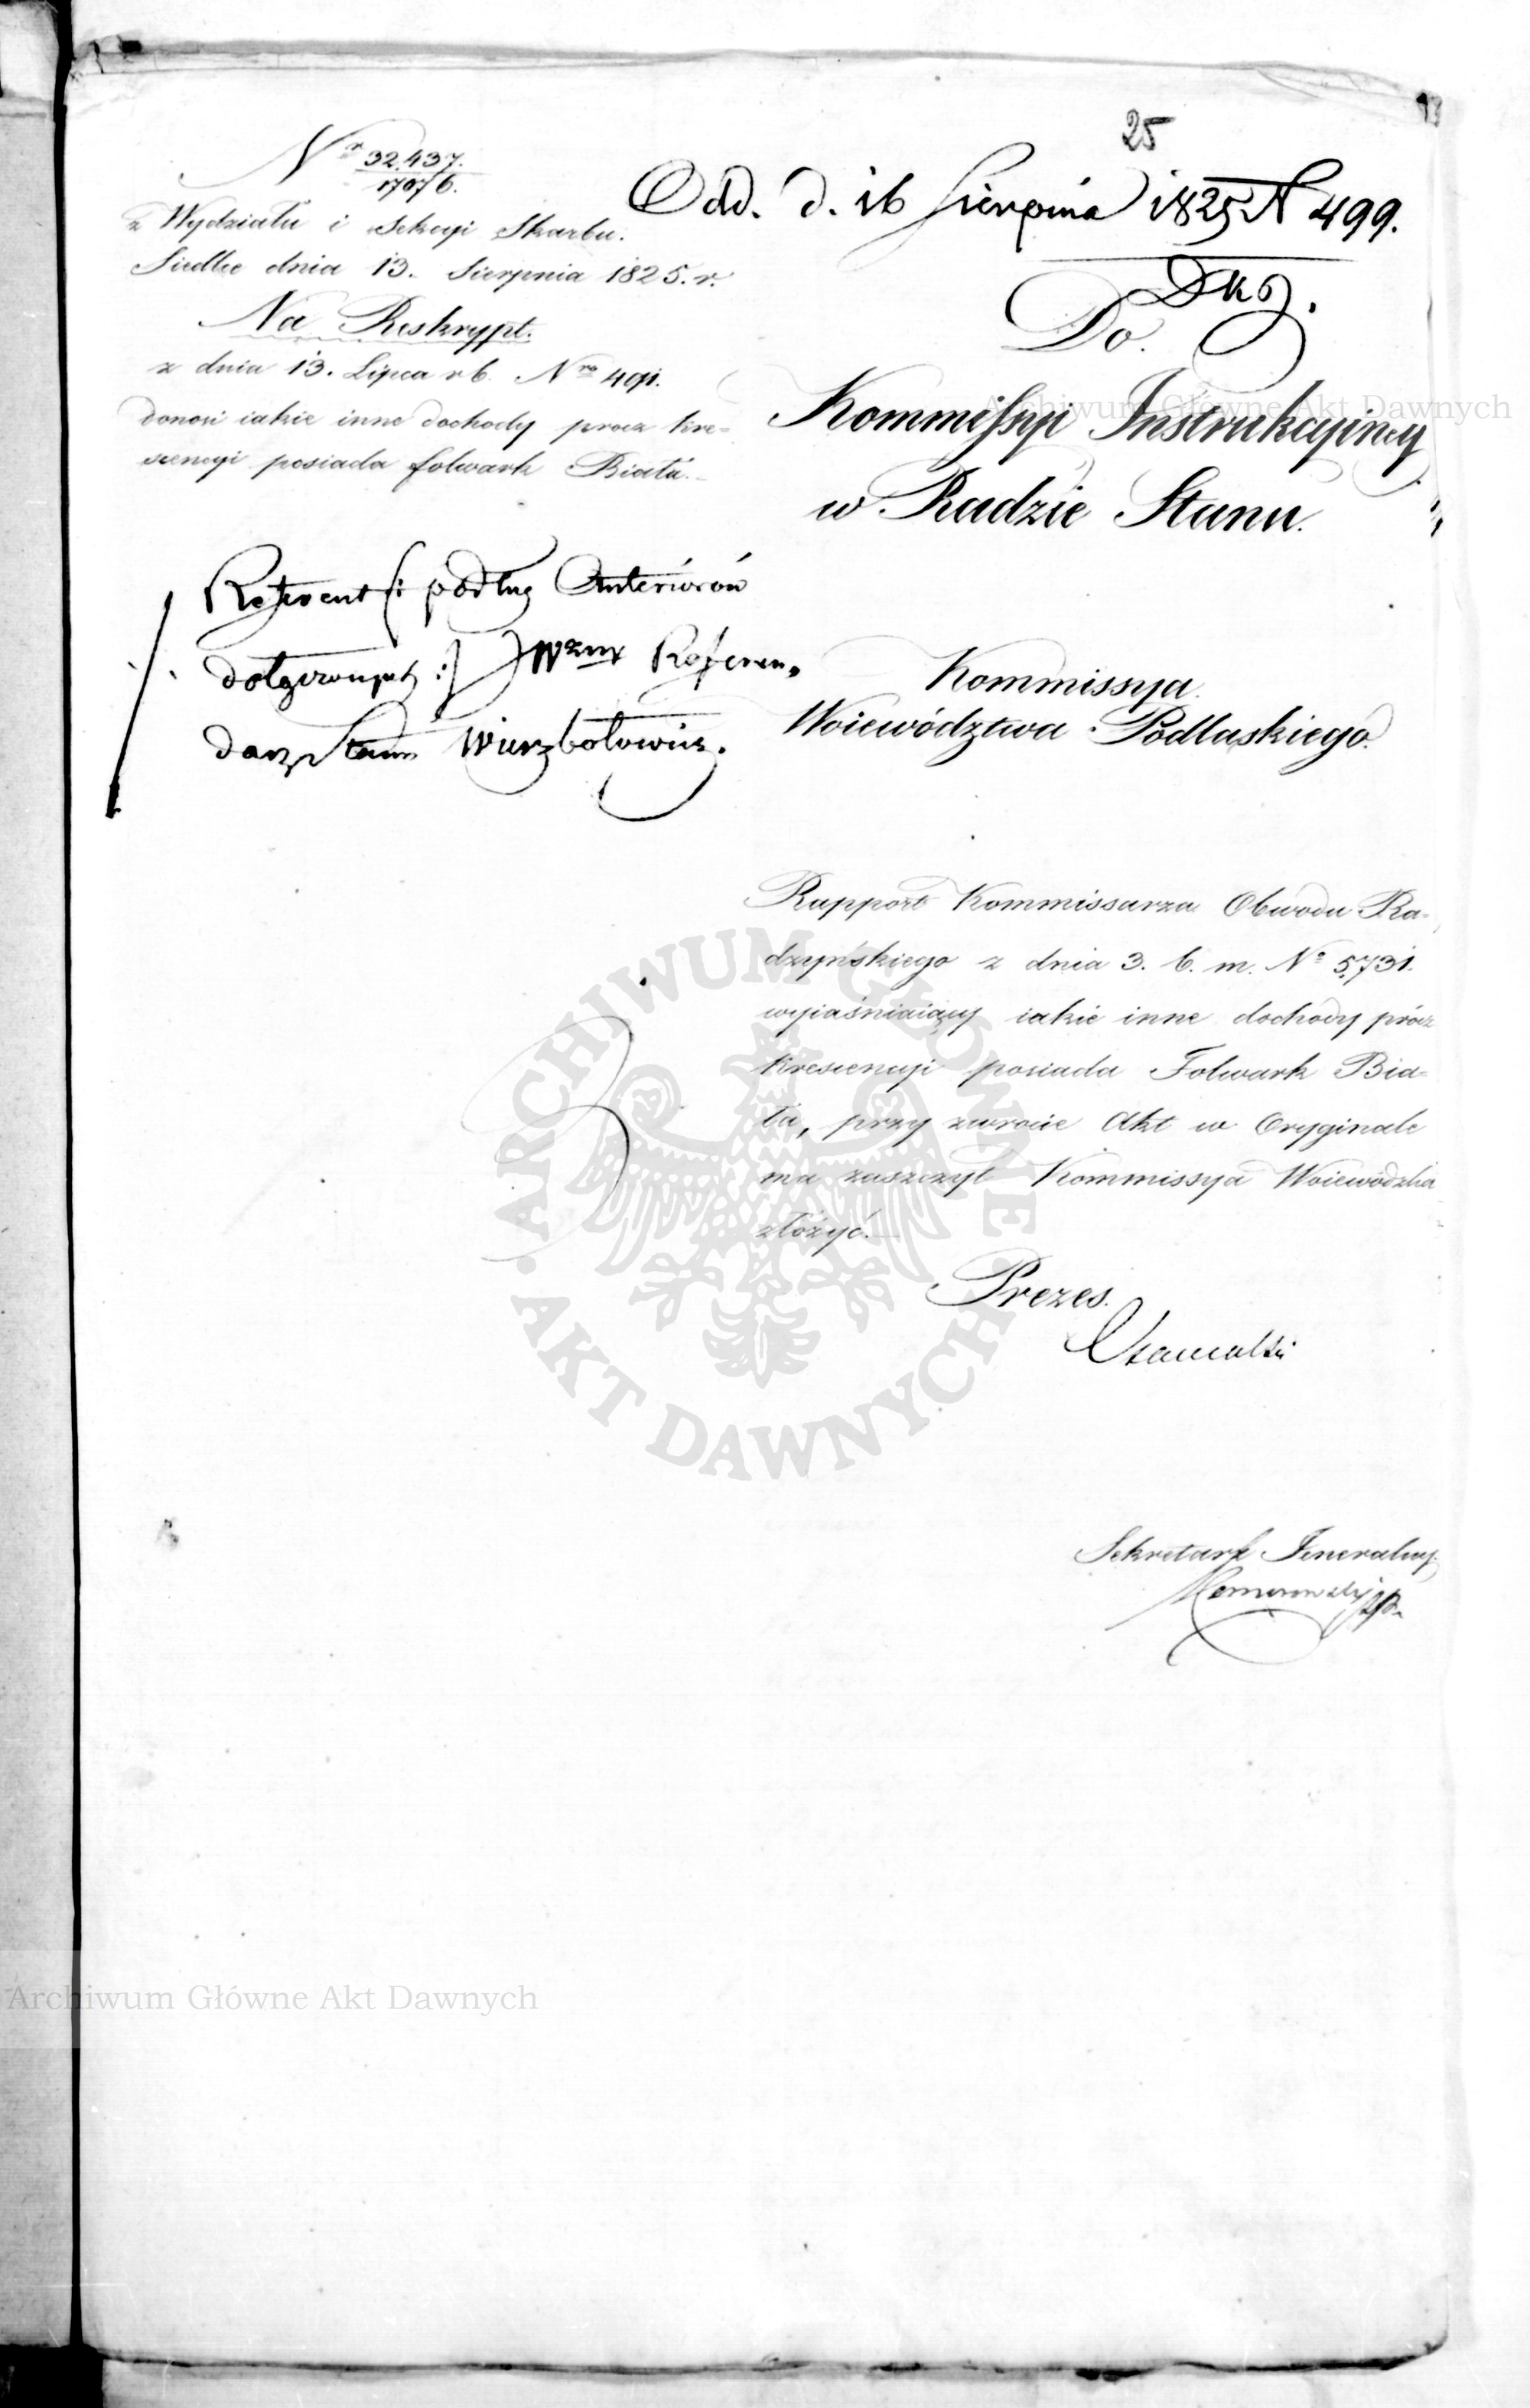 25
Odd. d. 16 Sierpnia 1825 N 499.
Nr 32,437.
17076.
z Wydziału i Sekcyi Skarbu.
Siedlce dnia 13. Sierpnia 1825. r.
Na Reskrypt.
z dnia 13. Lipca r b. Nro 491.
donosi iakie inne dochody procz kre=
scencyi posiada folwark Biała.
Do
Kommissyi Instrukcyiney
w Radzie Stanu.
Referent (: podług Anteriorów
:) Wzny Referen=
darz Stanu Wierzbołowicz.
Kommissya
Woiewództwa Podlaskiego.
Rapport Kommissarza Obwodu Ra=
dzyńskiego z dnia 3. b. m. No 5,731.
wyiaśniaiący iakie inne dochody prócz
krescencyi posiada Folwark Bia=
ła, przy zwrocie Akt w Oryginale
ma zaszczyt Kommissya Woiewódzka
złożyć.
Prezes.
Sekretarz Jeneralny
Archiwum Główne Akt Dawnych
ARCHIWUM GŁÓWNE AKT DAWNYCH
Archiwum Główne Akt Dawnych